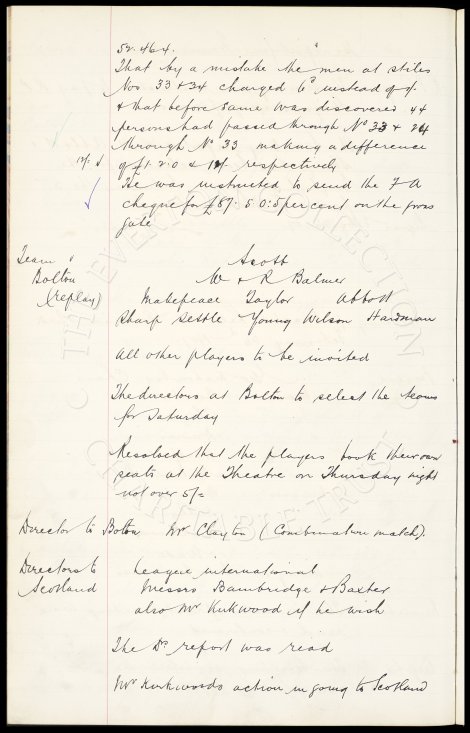 52.464.
That by a mistake the men at stiles
Nos 33 & 34 charged 6d instead of 1/-
& that before same was discovered 44
persons had passed through No 33 & 24
through No 33 making a difference
of £1.2.0 & 12/- respectively
12/-
He was instructed to send the F A
cheque for £87:5.0:5 per cent on the gross
gate
Team v
Bolton
(replay)
Scott
W & R Balmer
Makepeace Taylor Abbott
Sharp Settle Young Wilson Hardman
All other players to be invited
The directors at Bolton to select the teams
for Saturday
Resolved that the players book their own
seats at the Theatre on Thursday night
not over 5/=
Director to Bolton Mr Clayton (Combination match).
Directors to
Scotland
League international
Messrs Bainbridge & Baxter
also Mr Kirkwood if he wish
The Drs report was read
Mr Kirkwoods action in going to Scotland
THE EVERTON COLLECTION
CHARITABLE TRUST